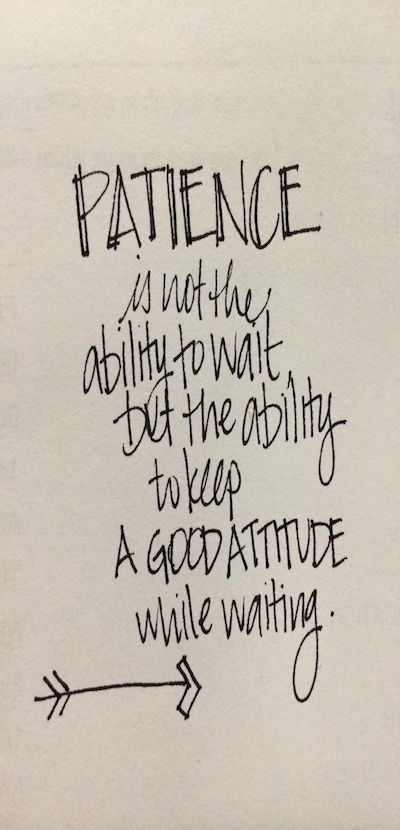 PATIENCE
is not the
ability to wait
but the ability
to keep
A GOOD ATTITUDE
while waiting.